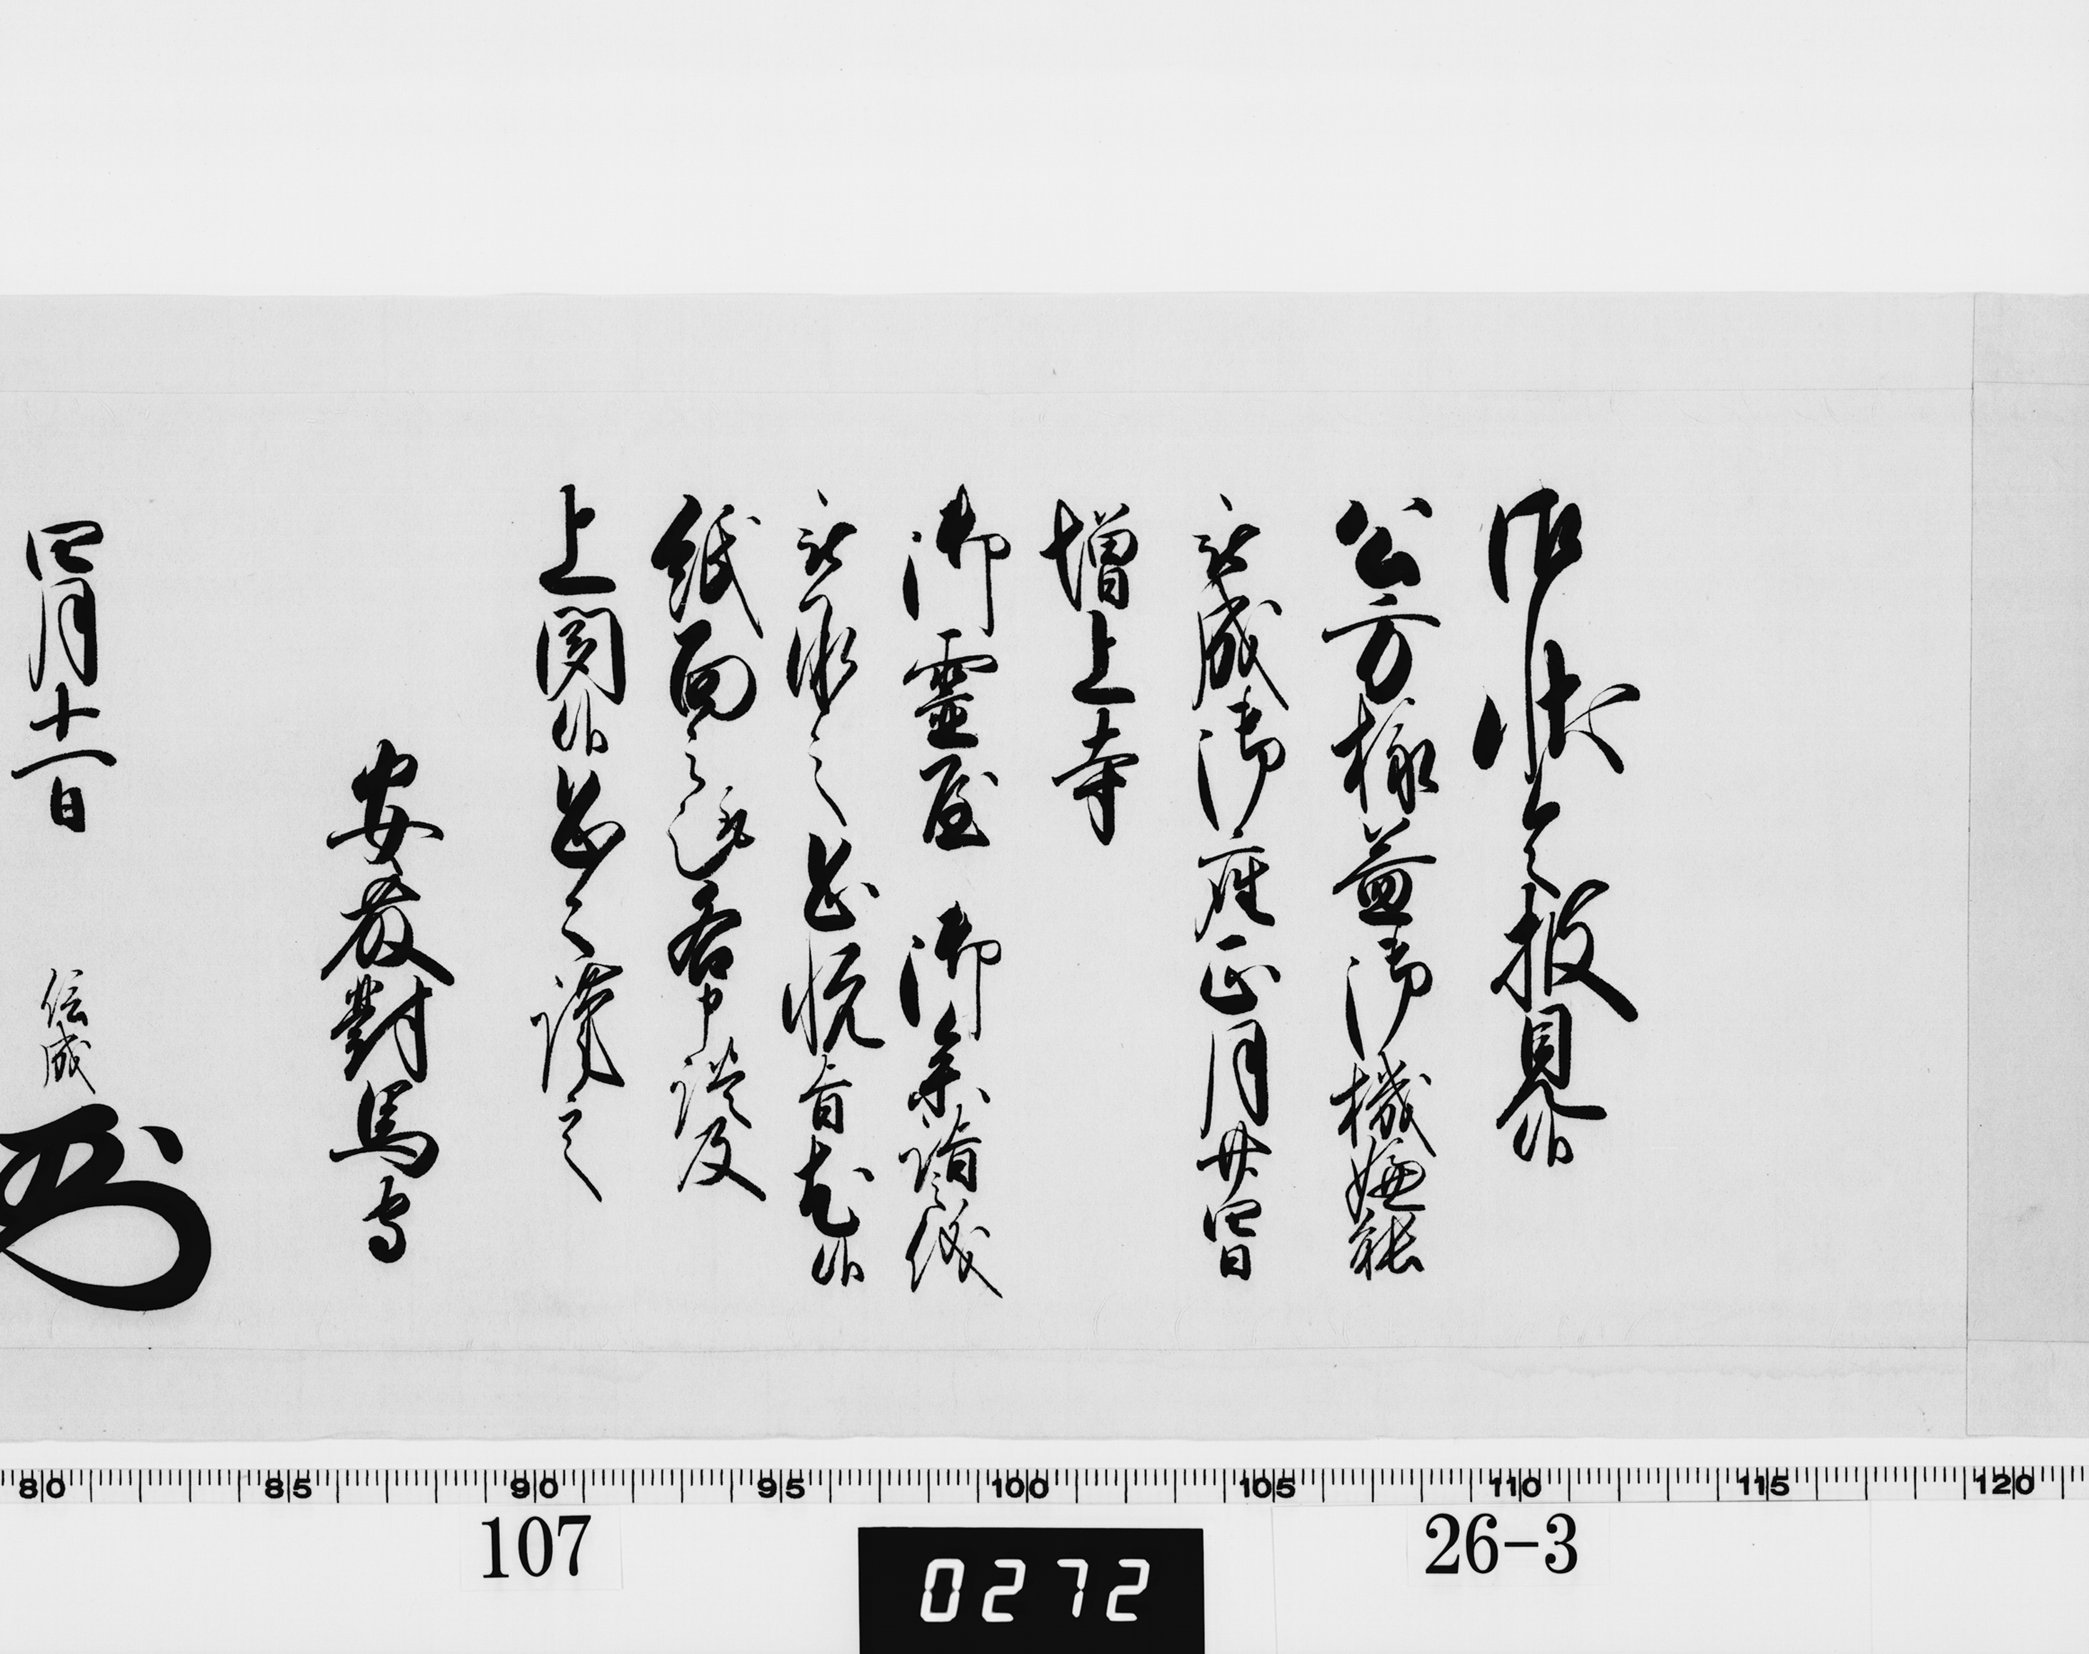 御状令披見候
公方様益御機嫌能
被成御座正月廿四日
増上寺
御霊屋 御参詣之儀
被承之恐悦旨尤候
紙面之趣各申談及
上聞候恐々謹言
安藤對馬守
四月十一日 信成
80 85 90 95 100 105 110 115 120
107 26-3
0272